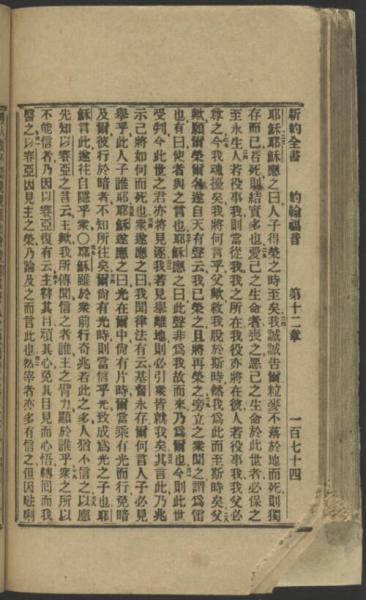 新約全書 約翰福音 第十二章 一百七十四
耶穌應之曰人子得榮之時至矣我誠誠告爾粒麥不落於地而死則獨
存而已若死則結實多也愛己之生命者喪之惡己之生命於此世者必保之
至永生人若役事我則當從我我之所在我役亦將在彼人若役事我我父必
尊之今我魂擾矣我將何言乎父歟救我脫於斯時然我為此而至斯時矣父
歟願爾榮爾名遂自天有聲云我已榮之且將再榮之旁立之衆聞之謂為雷
也有曰使者與之言也耶穌應之曰此聲非為我故而來乃為爾也今則此世
受判今此世之君亦將見逐我若見舉離地則必引衆皆就我矣其言此乃兆
示己將如何而死也衆遂應之曰我聞律法有云基督永存爾何言人子必見
舉乎此人子誰耶耶穌遂應之曰光在爾中尙有片時爾當乘有光而行免暗
及爾彼行於暗者不知所往矣爾尙有光時則當信乎光致成為光之子也耶
穌言此遂往自隱乎衆〇耶穌雖於衆前行奇兆若此之多人猶不信之以應
先知以賽亞之言云主歟我所傳聞信之者誰主之臂力顯於誰乎衆之所以
不能信者乃因以賽亞復有云主瞽其目頑其心免其目見而心悟轉囘而我
醫之以賽亞因見主之榮乃論及之而言此也然宰者亦多有信之但因𠵽唎